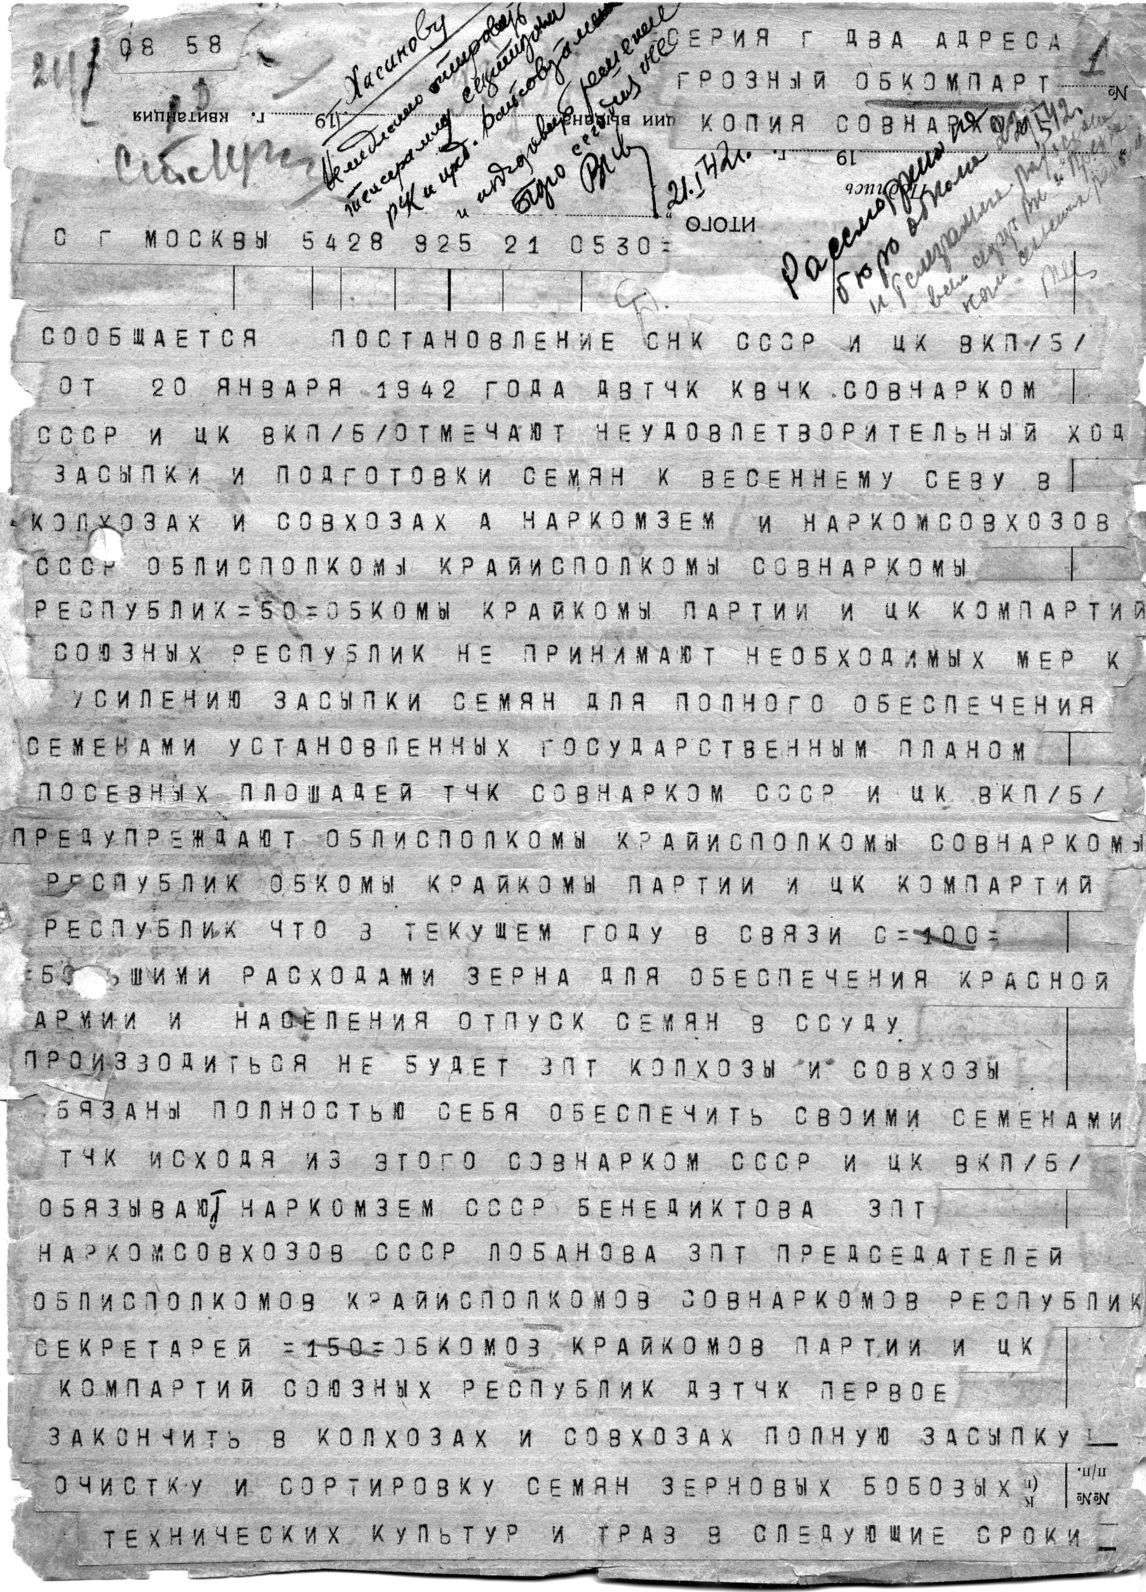 08 58
СЕРИЯ Г ДВА АДРЕСА
1
ГРОЗНЫЙ ОБКОМПАРТ
№
КОПИЯ СОВНАРКОМ
квитанция
г.
19
выдачи
19
г.
Подпись
ИТОГО
Хасинову
Необходимо
телеграмму
РК и
и подготовить решение
бюро сегодня же
21.I 42г.
Рассмотрено на
бюро обкома 22.I 42.
С Г МОСКВЫ 5428 925 21 0530=
СООБЩАЕТСЯ ПОСТАНОВЛЕНИЕ СНК СССР И ЦК ВКП/Б/
ОТ 20 ЯНВАРЯ 1942 ГОДА ДВТЧК КВЧК СОВНАРКОМ
СССР И ЦК ВКП/Б/ОТМЕЧАЮТ НЕУДОВЛЕТВОРИТЕЛЬНЫЙ ХОД
ЗАСЫПКИ И ПОДГОТОВКИ СЕМЯН К ВЕСЕННЕМУ СЕВУ В
КОЛХОЗАХ И СОВХОЗАХ А НАРКОМЗЕМ И НАРКОМСОВХОЗОВ
СССР ОБЛИСПОЛКОМЫ КРАЙИСПОЛКОМЫ СОВНАРКОМЫ
РЕСПУБЛИК=50=ОБКОМЫ КРАЙКОМЫ ПАРТИИ И ЦК КОМПАРТИЙ
СОЮЗНЫХ РЕСПУБЛИК НЕ ПРИНИМАЮТ НЕОБХОДИМЫХ МЕР К
УСИЛЕНИЮ ЗАСЫПКИ СЕМЯН ДЛЯ ПОЛНОГО ОБЕСПЕЧЕНИЯ
СЕМЕНАМИ УСТАНОВЛЕННЫХ ГОСУДАРСТВЕННЫМ ПЛАНОМ
ПОСЕВНЫХ ПЛОШАДЕЙ ТЧК СОВНАРКОМ СССР И ЦК ВКП/Б/
ПРЕДУПРЕЖДАЮТ ОБЛИСПОЛКОМЫ КРАЙИСПОЛКОМЫ СОВНАРКОМЫ
РЕСПУБЛИК ОБКОМЫ КРАЙКОМЫ ПАРТИИ И ЦК КОМПАРТИЙ
РЕСПУБЛИК ЧТО В ТЕКУЩЕМ ГОДУ В СВЯЗИ С=100=
БОЛЬШИМИ РАСХОДАМИ ЗЕРНА ДЛЯ ОБЕСПЕЧЕНИЯ КРАСНОЙ
АРМИИ И НАСЕЛЕНИЯ ОТПУСК СЕМЯН В ССУДУ
ПРОИЗВОДИТЬСЯ НЕ БУДЕТ ЗПТ КОЛХОЗЫ И СОВХОЗЫ
БЯЗАНЫ ПОЛНОСТЬЮ СЕБЯ ОБЕСПЕЧИТЬ СВОИМИ СЕМЕНАМИ
ТЧК ИСХОДЯ ИЗ ЭТОГО СОВНАРКОМ СССР И ЦК ВКП/Б/
ОБЯЗЫВАЮТ НАРКОМЗЕМ СССР БЕНЕДИКТОВА ЗПТ
НАРКОМСОВХОЗОВ СССР ЛОБАНОВА ЗПТ ПРЕДСЕДАТЕЛЕЙ
ОБЛИСПОЛКОМОВ КРАЙИСПОЛКОМОВ СОВНАРКОМОВ РЕСПУБЛИК
СЕКРЕТАРЕЙ =150=ОБКОМОВ КРАЙКОМОВ ПАРТИИ И ЦК
КОМПАРТИЙ СОЮЗНЫХ РЕСПУБЛИК ДВТЧК ПЕРВОЕ
ЗАКОНЧИТЬ В КОЛХОЗАХ И СОВХОЗАХ ПОЛНУЮ ЗАСЫПКУ
ОЧИСТКУ И СОРТИРОВКУ СЕМЯН ЗЕРНОВЫХ БОБОВЫХ
№№ п/п.
ТЕХНИЧЕСКИХ КУЛЬТУР И ТРАВ В СЛЕДУЮЩИЕ СРОКИ